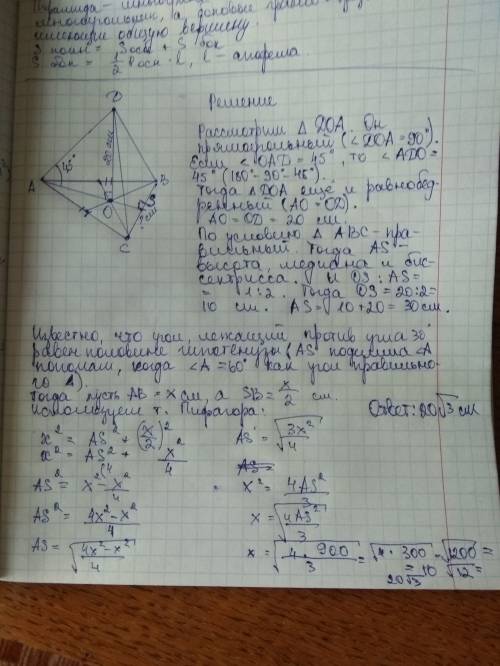 многоугольник, а боковые грани
имеющие общую вершину.
S полн = Sосн + S бок
S бок = 1/2 Pосн · l, l – апофема.
D
20 см
45°
A
B
O
S
? см
C
Решение
Рассмотрим △ DOA. Он
прямоугольный (∠DOA = 90°).
Если ∠OAD = 45°, то ∠ADO =
45° (180°-90°-45°).
Тогда △DOA ещё и равнобед-
ренный (AO = OD).
AO = OD = 20 см.
По условию △ ABC – пра-
вильный. Тогда AS –
высота, медиана и бис-
сектриса. И OS : AS =
= 1:2. Тогда OS = 20:2 =
10 см. AS = 10+20 = 30 см.
Известно, что угол, лежащий против угла 30°
равен половине гипотенузы (AS поделила ∠A
пополам, когда ∠A = 60° как угол правильно-
го △).
Тогда пусть AB = x см, а SB = x/2 см.
Используем т. Пифагора:
Ответ: 20√3 см
x² = AS² + (x/2)²
x² = AS² + x²/4
AS² = x² - x²/4
AS² = (4x² - x²)/4
AS = √((4x² - x²)/4)
AS = √(3x²/4)
AS =
x² = 4AS²/3
x = √(4AS²/3)
x = √(4 · 900/3) = √(4 · 300) = √1200 =
= 10√12 =
20√3